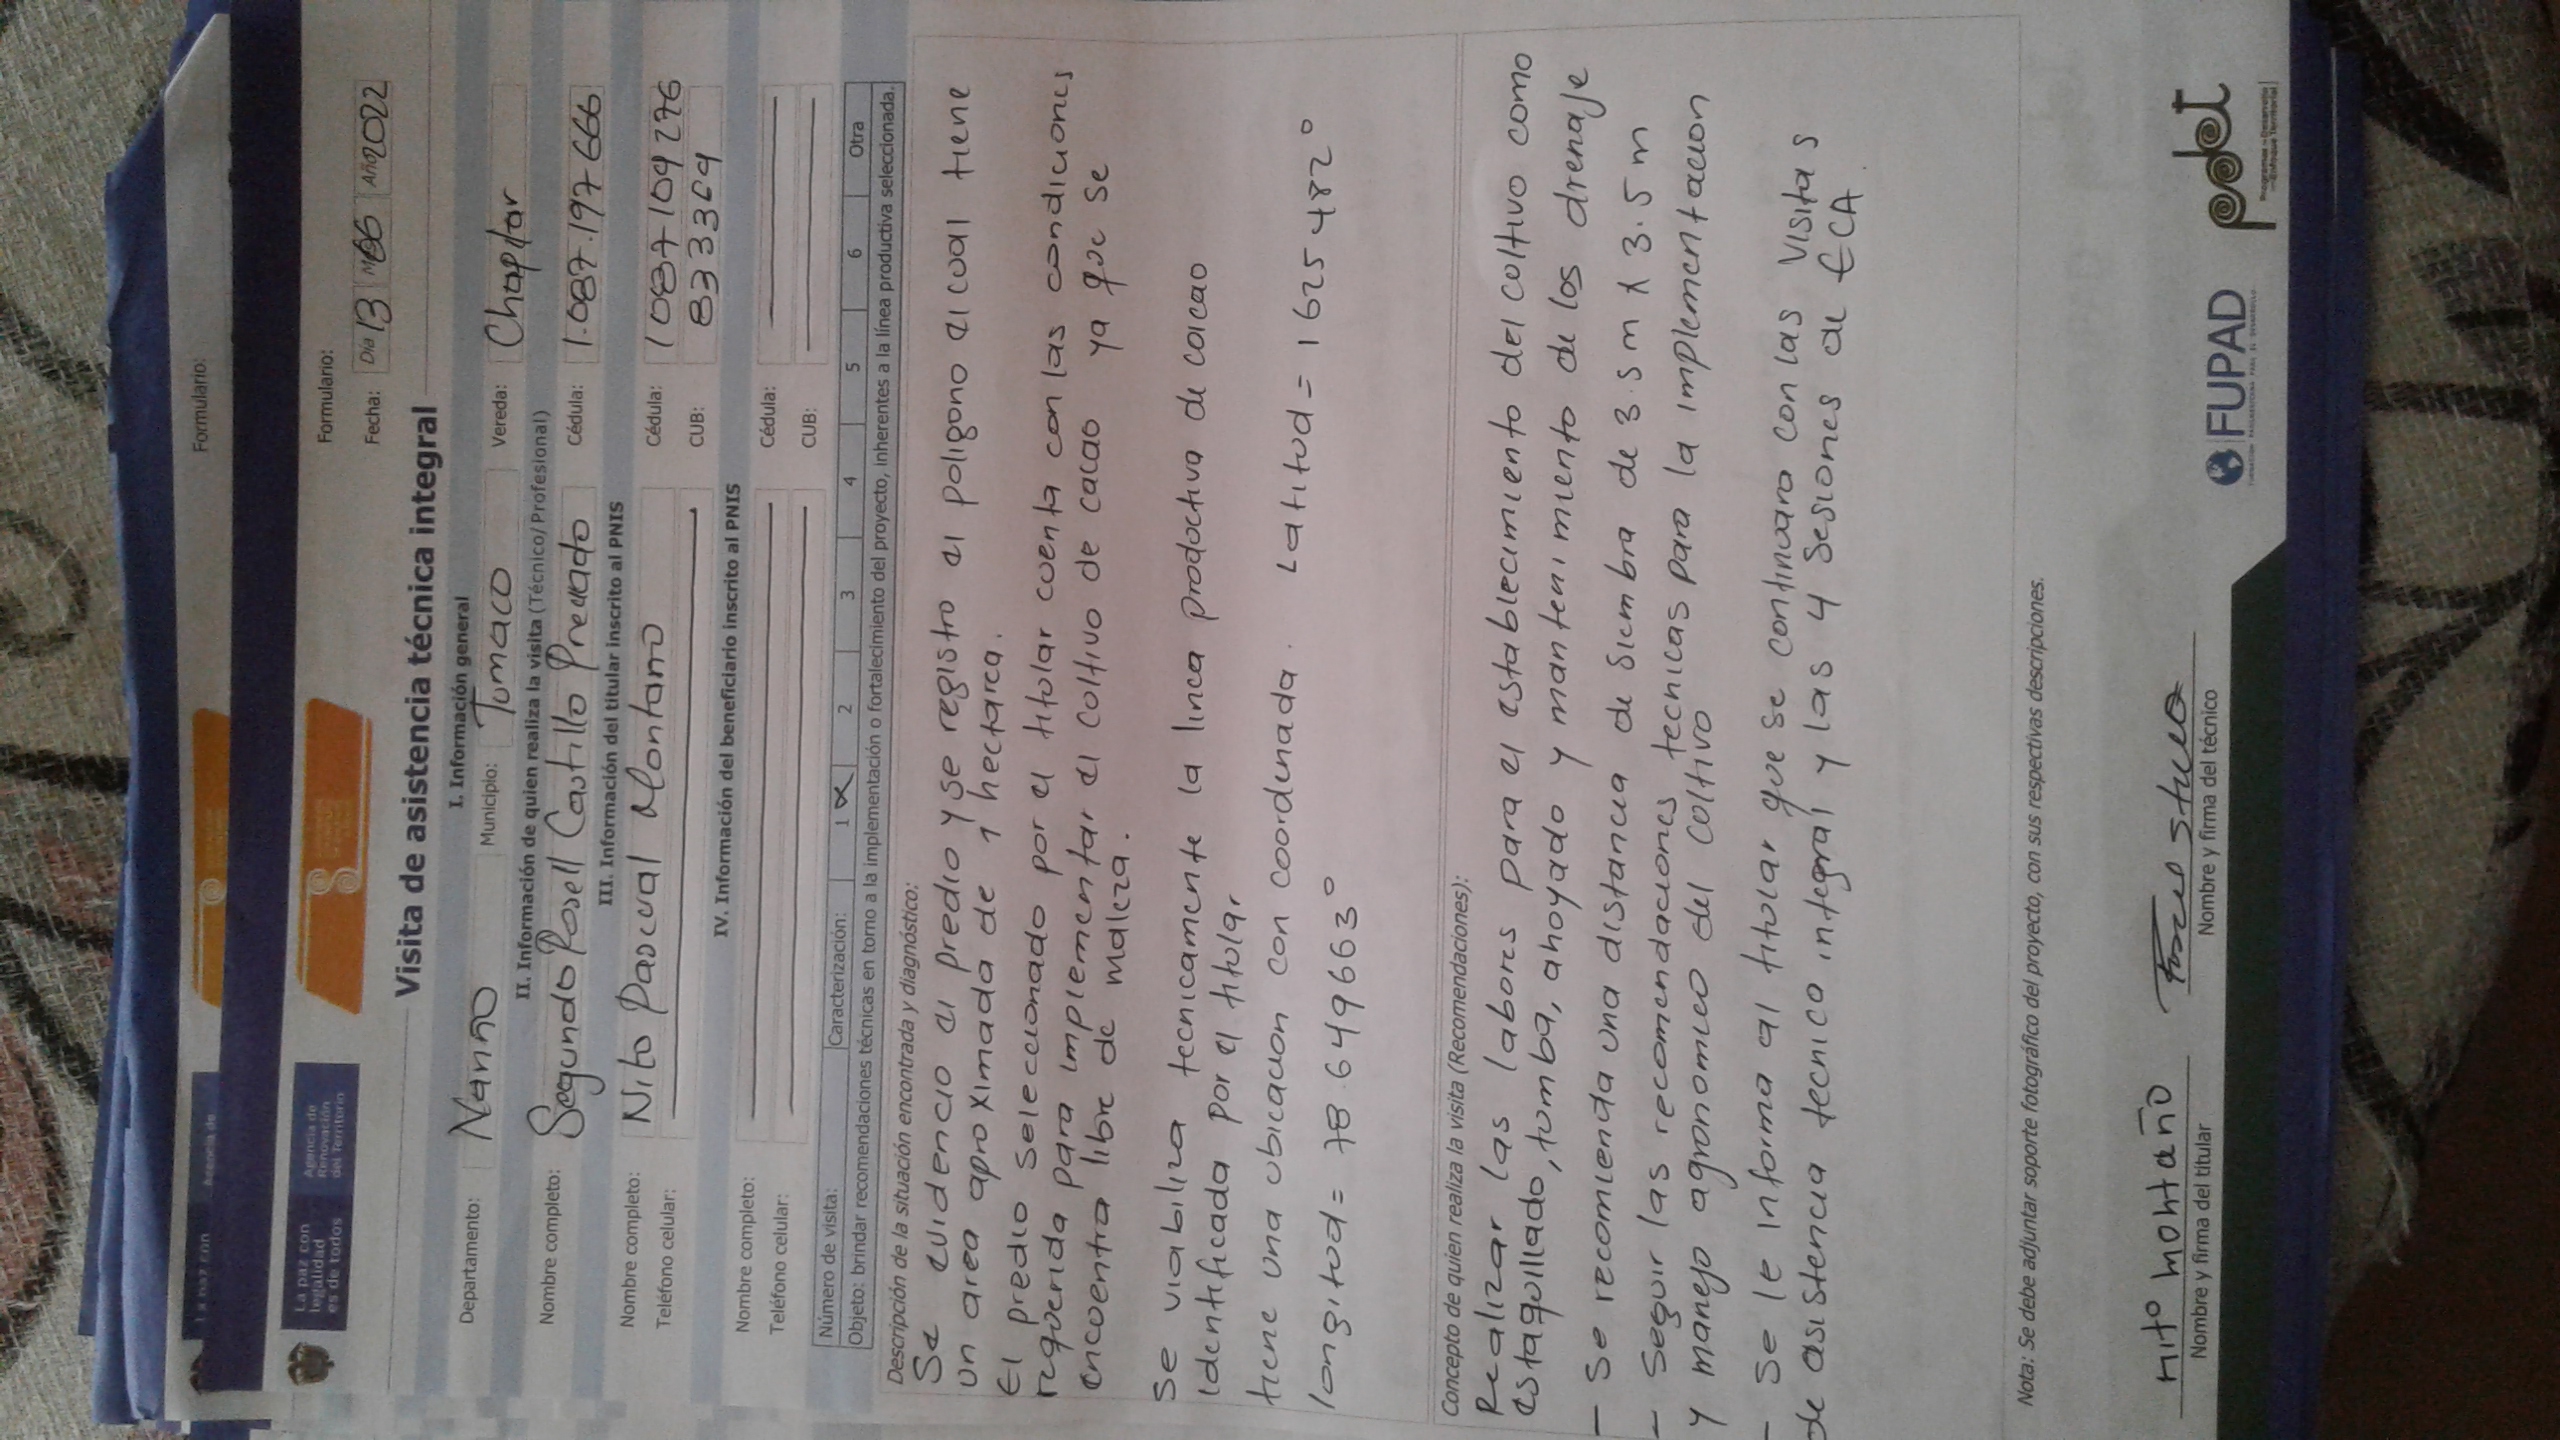 Formulario:
La paz con
legalidad
es de todos
Agencia de
Renovación
del Territorio
Formulario:
Fecha: Día 13 Mes 06 Año 2022
Visita de asistencia técnica integral
I. Información general
Departamento: Nariño Municipio: Tumaco Vereda: Chapilar
II. Información de quien realiza la visita (Técnico/Profesional)
Nombre completo: Segundo Rosell Castillo Preciado Cédula: 1.087.197.666
III. Información del titular inscrito al PNIS
Nombre completo: Nito Pascual Montaño Cédula: 1087109276
Teléfono celular: CUB: 833369
IV. Información del beneficiario inscrito al PNIS
Nombre completo: Cédula:
Teléfono celular: CUB:
Número de visita: Caracterización: 1 X 2 3 4 5 6 Otra
Objeto: brindar recomendaciones técnicas en torno a la implementación o fortalecimiento del proyecto, inherentes a la línea productiva seleccionada.
Descripción de la situación encontrada y diagnóstico:
Se evidencio el predio y se registro el poligono el cual tiene
un area aproximada de 1 hectarea.
El predio seleccionado por el titular cuenta con las condiciones
requerida para implementar el cultivo de cacao ya que se
encuentra libre de maleza.
Se viabiliza tecnicamente la linea productiva de cacao
identificada por el titular
tiene una ubicacion con coordenada. Latitud = 1625482°
longitud = 78.6496663°
Concepto de quien realiza la visita (Recomendaciones):
Realizar las labores para el establecimiento del cultivo como
estaquillado, tumba, ahoyado y mantenimiento de los drenaje
- Se recomienda una distancia de siembra de 3.5 m x 3.5 m
- Seguir las recomendaciones tecnicas para la implementacion
y manejo agronomico del cultivo
- Se le informa al titular que se continuara con las visitas
de asistencia tecnico integral y las 4 sesiones de ECA.
Nota: Se debe adjuntar soporte fotográfico del proyecto, con sus respectivas descripciones.
Nito Montaño
Nombre y firma del titular
Nombre y firma del técnico
FUPAD
pdet
Programas de Desarrollo
con Enfoque Territorial